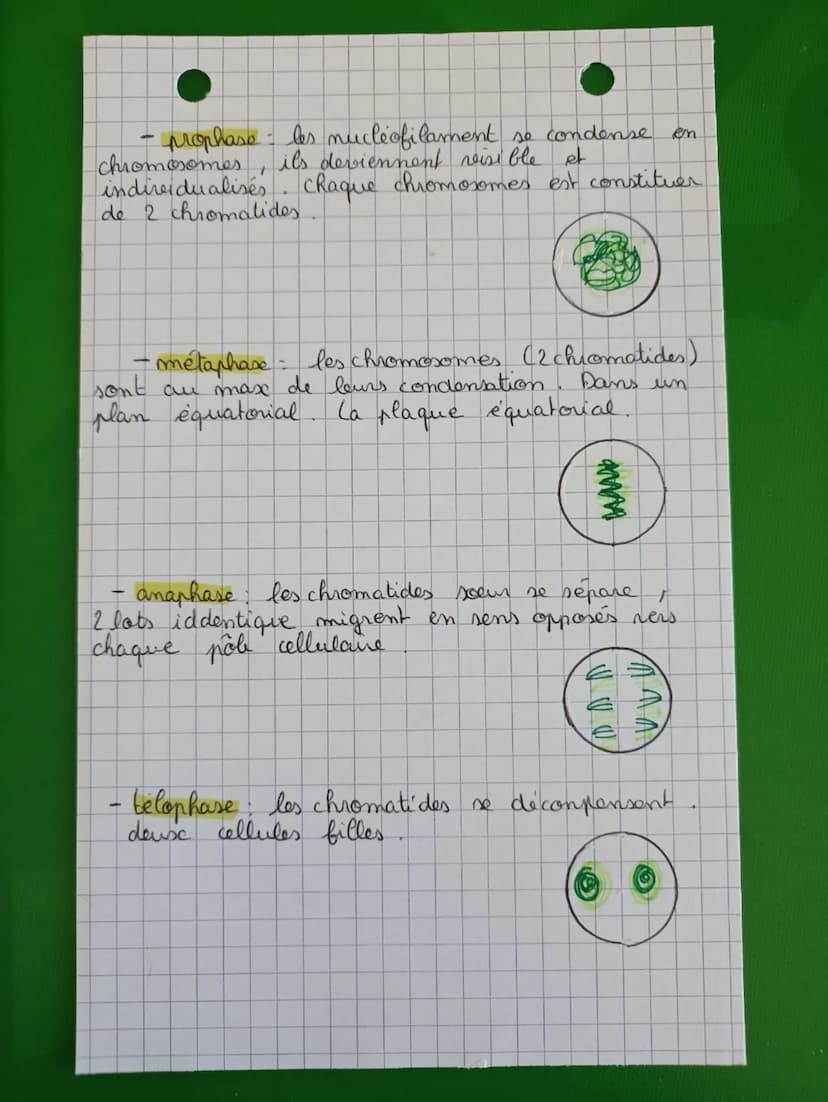 - prophase : les nucléofilament se condense en
chromosomes , ils deviennent visible et
individualisés . Chaque chromosomes est constituer
de 2 chromatides .
- métaphase : les chromosomes (2 chromatides)
sont au max de leurs condensation . Dans un
plan équatorial . La plaque équatorial .
- anaphase : les chromatides soeur se sépare ,
2 lots iddentique migrent en sens opposés vers
chaque pôle cellulaire .
- télophase : les chromatides se décompensent .
deux cellules filles .